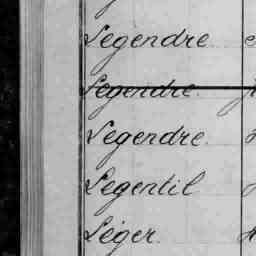 Legendre
Legendre
Legendre.
Legentil
Léger.